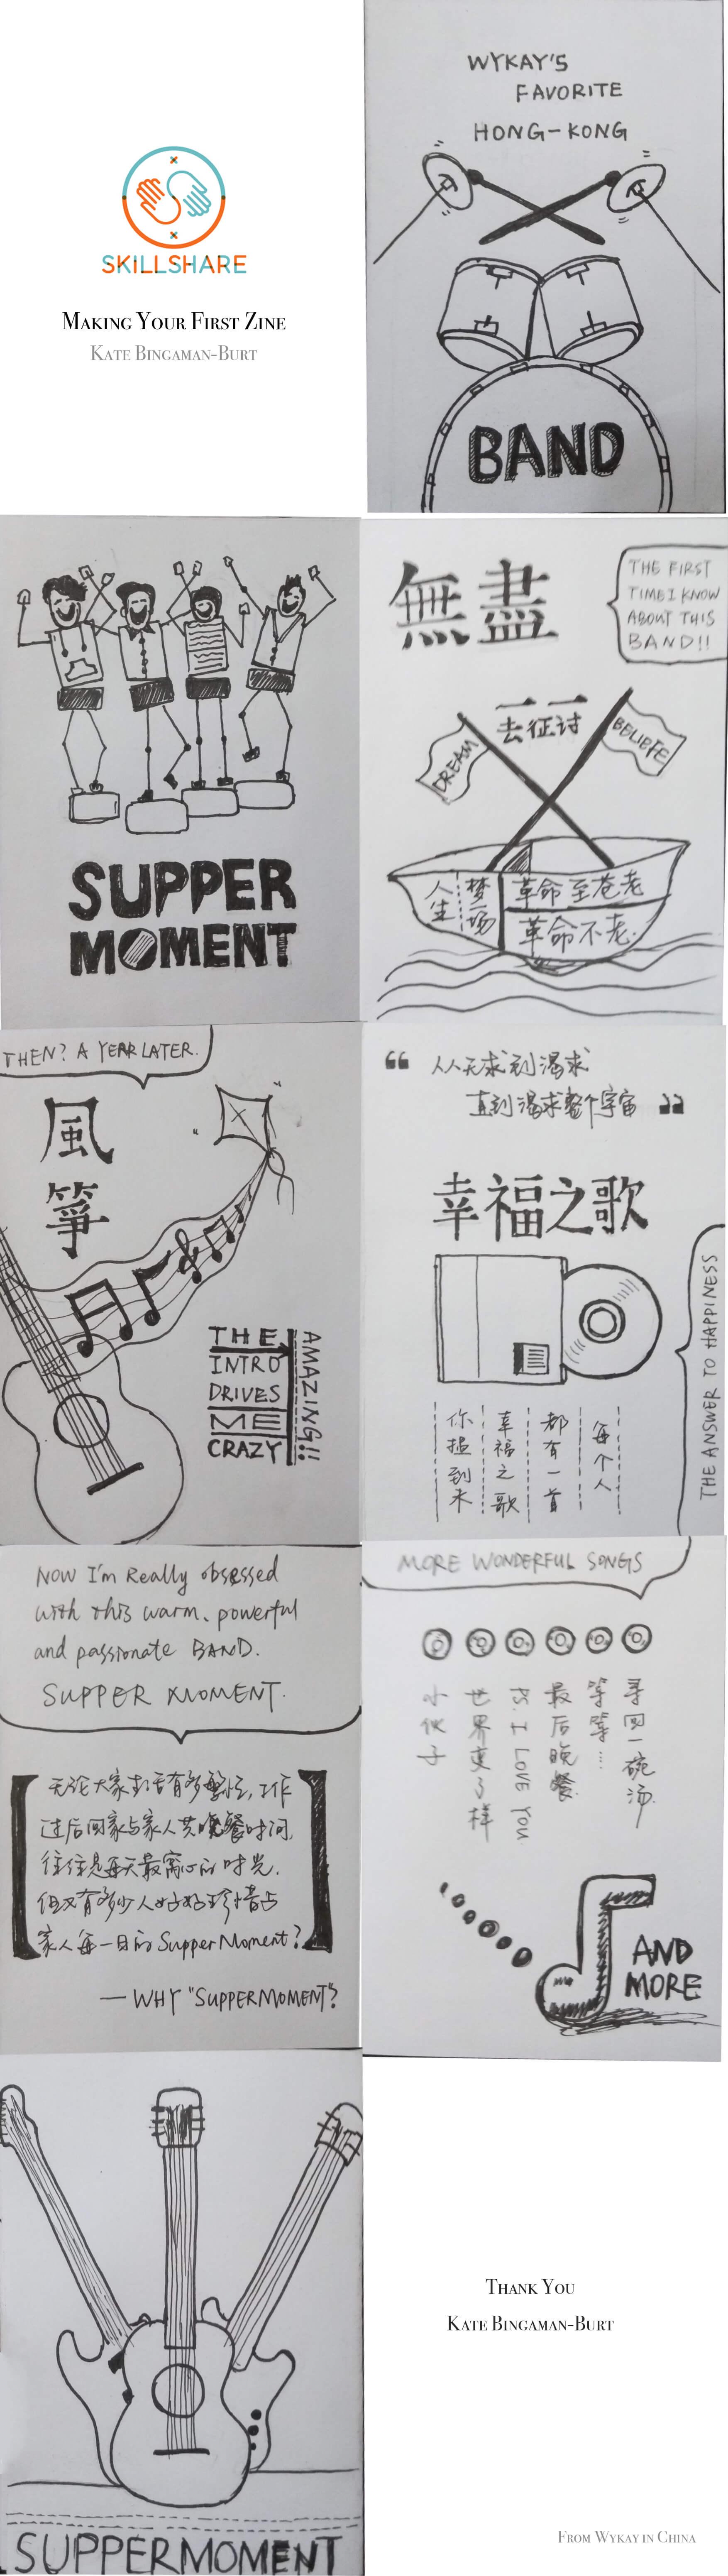 SKILLSHARE
MAKING YOUR FIRST ZINE
KATE BINGAMAN-BURT
WYKAY'S
FAVORITE
HONG-KONG
BAND
SUPPER
MOMENT
無盡
THE FIRST
TIME I KNOW
ABOUT THIS
BAND!!
一一
去征讨
DREAM
BELIEFE
人生
梦一场
革命至苍老
革命不老.
THEN? A YEAR LATER.
風
箏
THE
INTRO
DRIVES
ME
CRAZY
AMAZING!!
“ 从无求到渴求
直到渴求整个宇宙 ”
幸福之歌
THE ANSWER TO HAPPINESS
每个人
都有一首
幸福之歌
你揾到未
NOW I'm Really obsessed
with this warm、powerful
and passionate BAND.
SUPPER MOMENT.
无论大家生活有多繁忙，工作
过后回家与家人共晚餐时间，
往往是每天最窝心的时光.
但又有多少人好好珍惜与
家人每一日的 Supper Moment?
— WHY "SUPPERMOMENT"?
MORE WONDERFUL SONGS
寻回一碗汤.
等等...
最后晚餐
P.S. I LOVE YOU
世界变了样
小伙子
AND
MORE
SUPPERMOMENT
THANK YOU
KATE BINGAMAN-BURT
FROM WYKAY IN CHINA